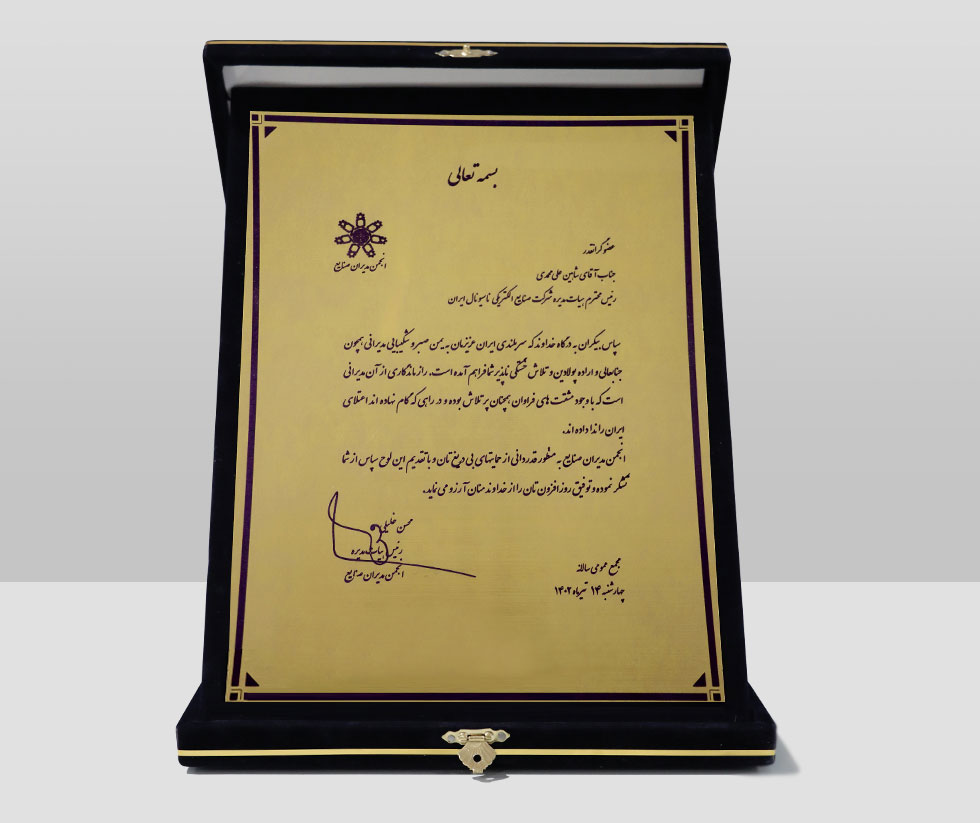 بسمه تعالی
انجمن مدیران صنایع
عضو گرانقدر
جناب آقای شاهین علی محمدی
رئیس محترم هیات مدیره شرکت صنایع الکتریکی ناسیونال ایران
سپاس بیکران به درگاه خداوند که سربلندی ایران عزیزمان به یمن صبر و شکیبایی مدیرانی همچون
جنابعالی و اراده پولادین و تلاش خستگی ناپذیر شما فراهم آمده است. راز ماندگاری از آن مدیرانی
است که با وجود مشقت های فراوان همچنان پر تلاش بوده و در راهی که گام نهاده اند اعتلای
ایران را ندا داده اند.
انجمن مدیران صنایع به منظور قدردانی از حمایتهای بی دریغ تان و با تقدیم این لوح سپاس از شما
تشکر نموده و توفیق روز افزون تان را از خداوند منان آرزو می نماید.
محسن خلیلی
رئیس هیات مدیره
انجمن مدیران صنایع
مجمع عمومی سالانه
چهارشنبه ۱۴ تیرماه ۱۴۰۲